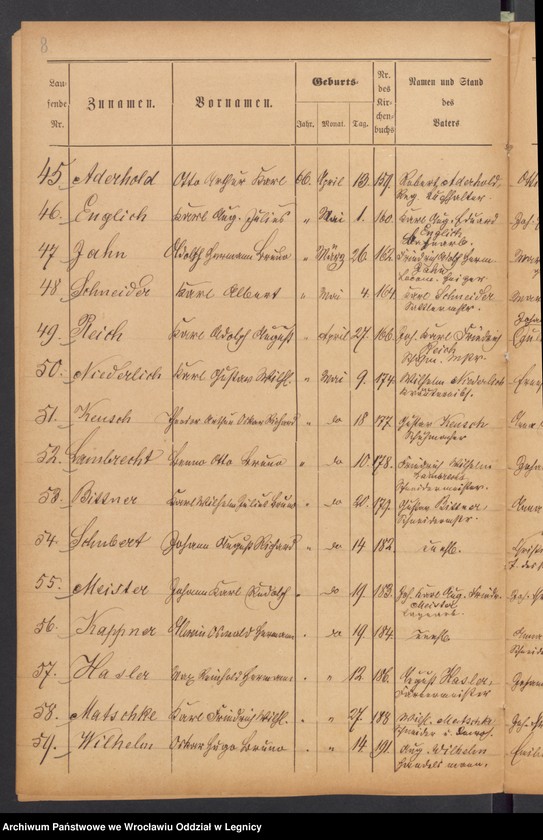 8
Lau-
fende
Nr.
Zunamen.
Vornamen.
Geburts-
Jahr. Monat. Tag.
Nr.
des
Kir-
chen-
buchs
Namen und Stand
des
Vaters
45 Aderhold Otto Arthur Karl 66 April 13. 159. Robert Aderhold,
46. Englich Karl Aug. Julius " Mai 1. 160. Karl Aug. Eduard
Englich
47 Jahn Adolph Hermann Bruno " März 26. 162. Friedrich Adolf Herm.
Jahn
48 Schneider Karl Albert " Mai 4. 164 Karl Schneider
Sattlermstr.
49. Reich Karl Adolph August " April 27 166. Joh. Karl Friedrich
Reich
50. Niederlich Karl Gustav Wilh. " Mai 9. 174. Wilhelm Niederlich
51. Keusch Oskar Richard " do 18 177. Gustav Keusch
Schuhmacher
52. Lambrecht Otto Bruno " do 10. 178. Friedrich Wilhelm
Lambrecht
Schneidermeister.
53. Bittner Karl Wilhelm Julius Bruno " do 20. 179. Gustav Bittner,
Schneidermstr.
54. Schubert Johann August Richard " do 14 182. unehl.
55. Meister Johann Karl Rudolph " do 19. 183. Joh. Karl Aug. Friedr.
Meister
56. Kappner Oswald Hermann " do 19 184 unehl.
57. Hasler Max Reinhold Hermann " " 12. 186. August Hasler,
58. Matschke Karl Friedrich Wilh. " " 27. 188 Wilh. Matschke,
59. Wilhelm Oskar Hugo Bruno " " 14. 191. Aug. Wilhelm
Handelsmann.
Archiwum Państwowe we Wrocławiu Oddział w Legnicy